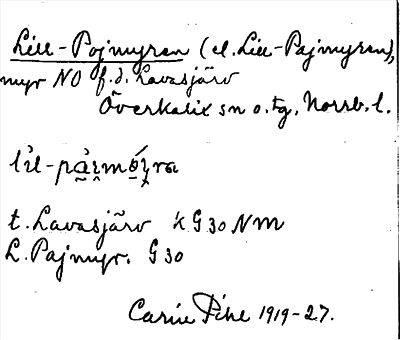 Lill-Pojmyran (el. Lill-Pajmyran),
myr NO f.d. Lavasjärv
Överkalix sn o. tg. Norrb. l.
t. Lavasjärv k G 30 NM
L. Pajmyr. G 30
Carin Pihl 1919-27.